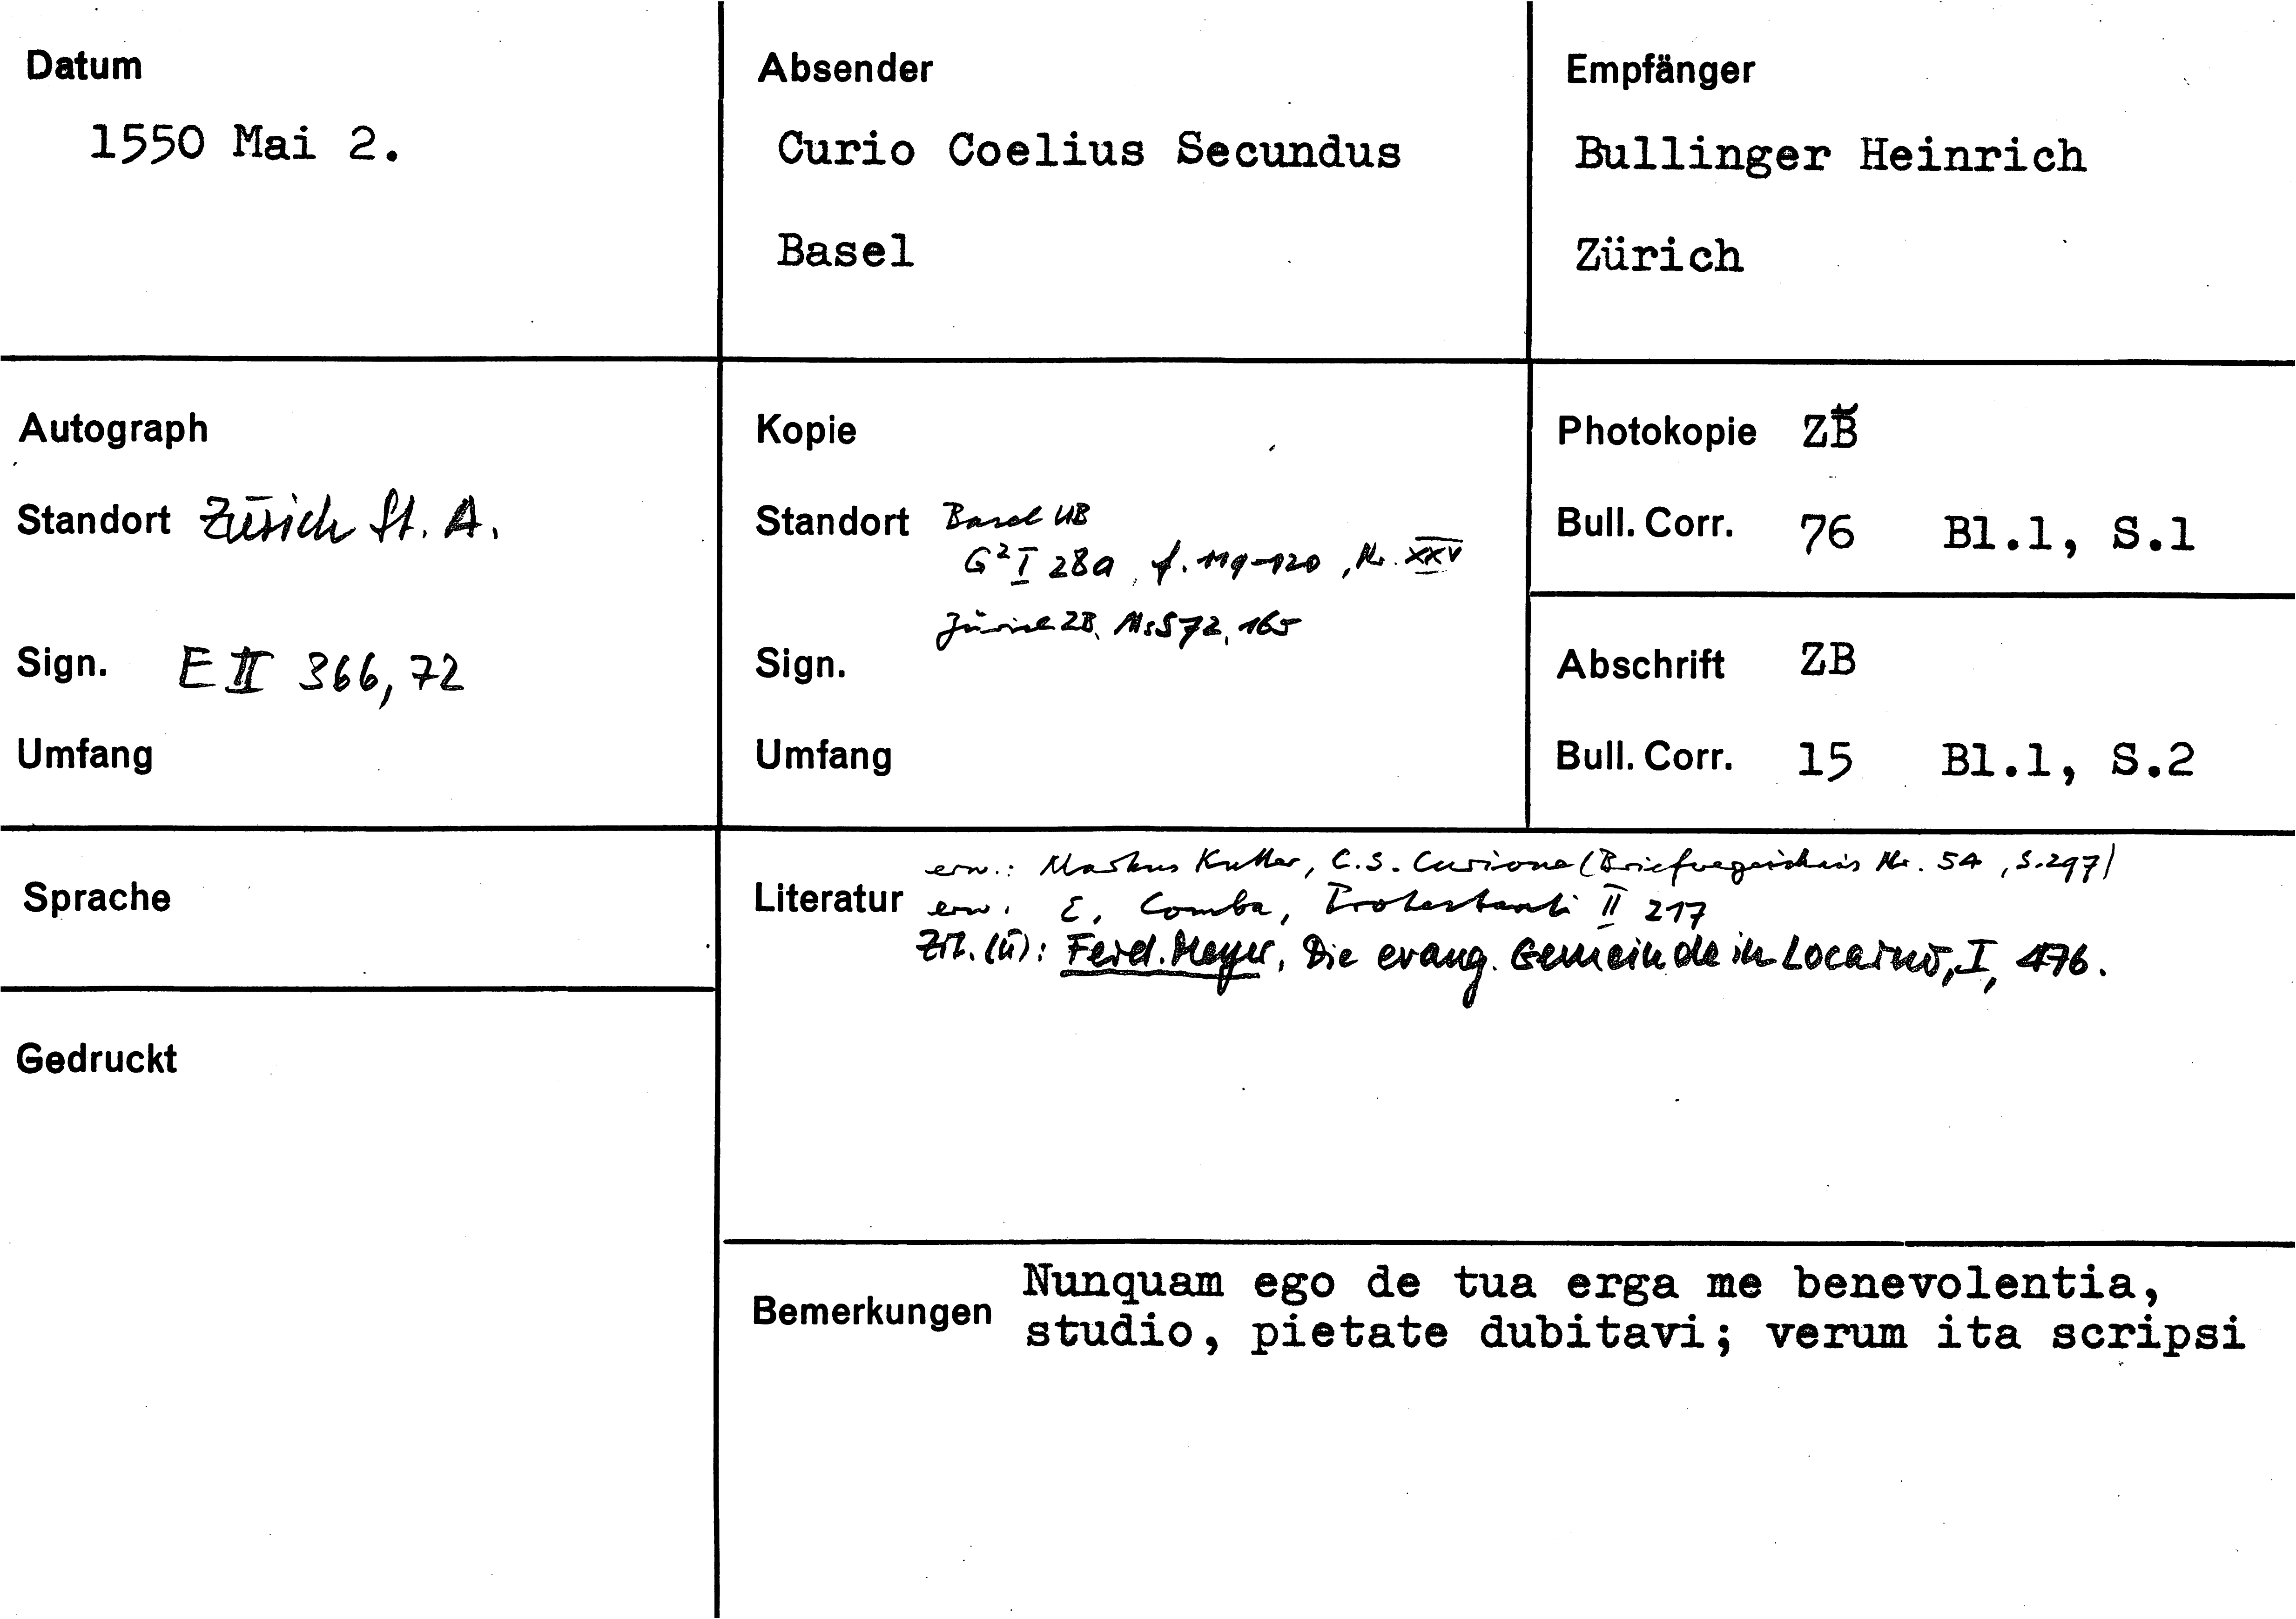 Datum
1550 Mai 2.
Absender
Curio Coelius Secundus
Basel
Empfänger
Bullinger Heinrich
Zürich
Autograph
Standort Zürich St. A.
Sign. E II 366, 72
Umfang
Kopie
Standort Basel UB
G² I 28a, f. 119-120, Nr. XXV
Zürich ZB, Ms S 72, 165
Sign.
Umfang
Photokopie ZB
Bull. Corr. 76 Bl.1, S.1
Abschrift ZB
Bull. Corr. 15 Bl.1, S.2
Sprache
Gedruckt
Literatur
erw.: Markus Kutter, C.S. Curione (Briefverzeichnis Nr. 54, S.297)
erw. E. Comba, Protestanti II 217
Zit. (ü): Ferd. Meyer, Die evang. Gemeinde in Locarno, I, 476.
Bemerkungen
Nunquam ego de tua erga me benevolentia,
studio, pietate dubitavi; verum ita scripsi